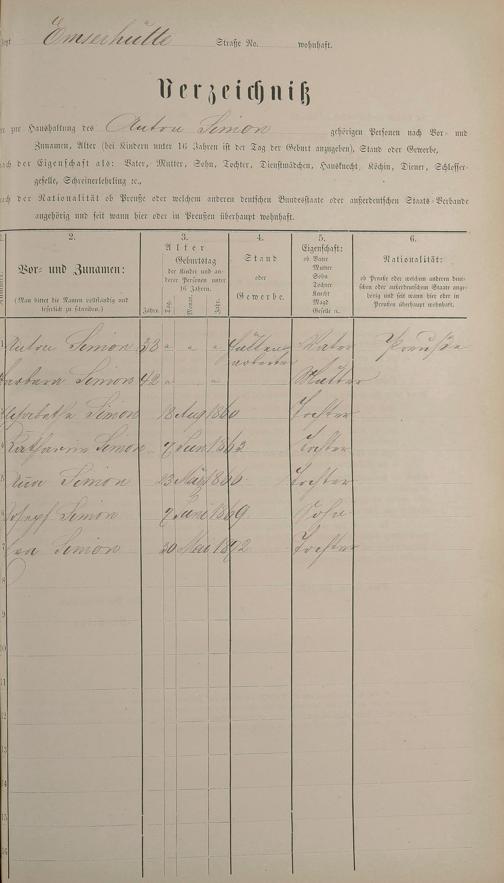 Emserhütte Straße No. wohnhaft.
Verzeichniß
zur Haushaltung des Anton Simon gehörigen Personen nach Vor- und
Zunamen, Alter (bei Kindern unter 16 Jahren ist der Tag der Geburt anzugeben), Stand oder Gewerbe,
nach der Eigenschaft als: Vater, Mutter, Sohn, Tochter, Dienstmädchen, Hausknecht, Köchin, Diener, Schlosser-
geselle, Schreinerlehrling ꝛc.,
nach der Nationalität ob Preuße oder welchem anderen deutschen Bundesstaate oder außerdeutschen Staats-Verbande
angehörig und seit wann hier oder in Preußen überhaupt wohnhaft.
2. 3. 4. 5. 6.
Vor- und Zunamen:
(Man bittet die Namen vollständig und leserlich zu schreiben.)
Alter
Geburtstag
der Kinder und an-
derer Personen unter
16 Jahren.
Jahre. Tag. Monat. Jahr.
Stand
oder
Gewerbe.
Eigenschaft:
ob Vater
Mutter
Sohn
Tochter
Knecht
Magd
Geselle ꝛc.
Nationalität:
ob Preuße oder welchem anderen deut-
schen oder außerdeutschen Staate ange-
hörig und seit wann hier oder in
Preußen überhaupt wohnhaft.
Anton Simon 53 " " " Hütten- arbeiter Vater Preuße
Barbara Simon 42 " " " Mutter
Elisabetha Simon 18 Aug 1860 Tochter
4 Katharina Simon 7 1863 Tochter
5 Simon 23 1866 Tochter
6 Joseph Simon 7 Juni 1869 Sohn
7 Simon 20 Mai 1872 Tochter
8
9
10
11
12
13
14
15
16